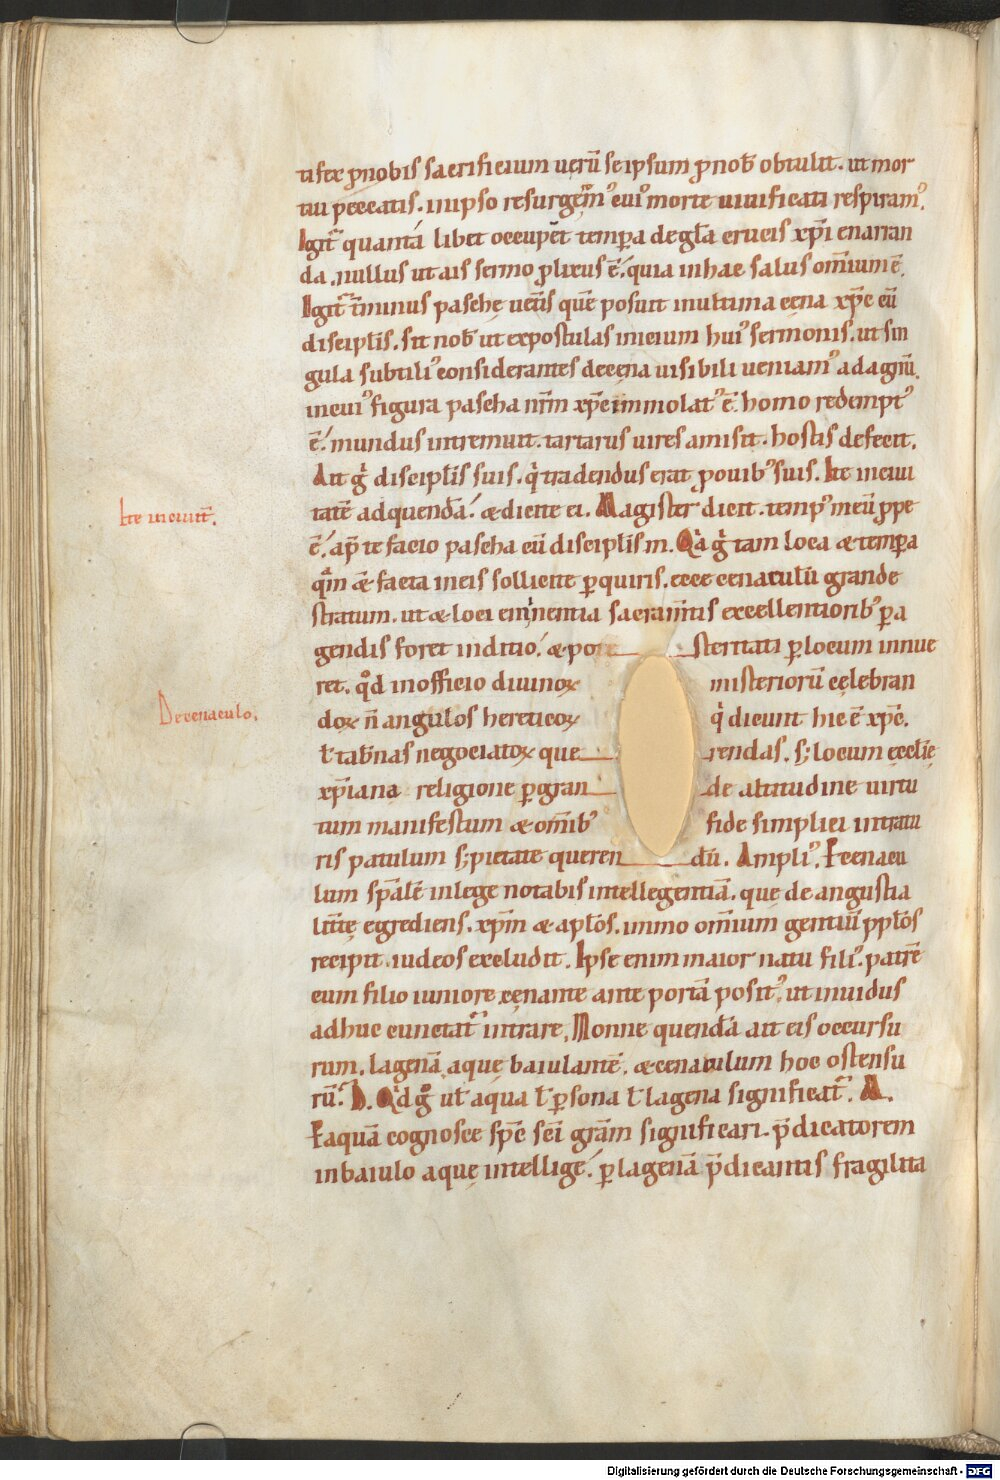 tifex ꝓnobis sacrificium uerū seipsum ꝓnob̄ obtulit. ut mor
tui peccatis. inipso resurgem᷒ cui᷒ morte uiuificati respiram᷒.
Igit̄ quantā libet occupet tempꝑa de gl̄a crucis xp̄i enarran
da, nullus ut ais sermo ꝓlixus ē. quia in hac salus om̄ium ē.
Igit̄ t̄minus paschę uet̄is quē posuit in ultima cena xp̄c cū
discipl̄is. sit nob̄ ut expostulas inicium hui᷒ sermonis. ut sin
gula subtili᷒ considerantes de cęna uisibili ueniam᷒ ad agnū.
in cui᷒ figura pascha nr̄m xp̄c immolat᷒ ē. homo redempt᷒
ē. mundus intremuit. tartarus uires amisit. hostis defecit.
Ait g̊ discipl̄is suis. q̇ tradendus erat ꝓouib᷒ suis. Ite in ciui
tatē ad quendā. & dicite ei. Magister dicit. temp᷒ meū ꝓpe
ē. ap̄ te facio pascha cū discipl̄is m. Qd̄ g̊ tam loca & tempꝑa
qm̄ & facta in eis sollicite ꝑquiris. ecce cenaculū grande
stratum. ut & loci eminentia sacram̄tis excellentiorib᷒ ꝑa
gendis foret inditio. & po steritati ꝑ locum innue
ret. qd̄ in officio diuinoꝝ misteriorū cęlebran
doꝝ n̄ angulos hereticoꝝ q̇ dicunt hic ē xp̄c.
ł tab̄nas negociatoꝝ que rendas. s; locum ęccl̄ię
xp̄iana religione ꝑ gran de altitudine uirtu
tum manifestum & om̄ib᷒ fide simplici intratu
ris patulum s; pietate queren dū. Ampli᷒. Et cenacu
lum sp̄ale in lege notabis intellegentiā. quę de angustia
litt̄ę egrediens. xp̄m & aptōs. immo om̄ium gentiū ppłos
recipit. iudeos excludit. Ipse enim maior natu fili᷒. patrē
cum filio iuniore cęnante ante portā posit᷒. ut inuidus
adhuc cunctat̄ intrare. Nonne quendā ait eis occursu
rum. lagenā aquę baiulantē. & cenaculum hoc ostensu
rū. D. Qd̄ g̊ ut aqua ł ꝑsona ł lagena significat̄. M.
Et aquā cognosce sp̄c sc̄i gr̄am significari. p̄dicatorem
in baiulo aquę intellige. ꝑ lagenā p̄dicantis fragilita
Ite in ciuit̄.
De cenaculo.
Digitalisierung gefördert durch die Deutsche Forschungsgemeinschaft - DFG